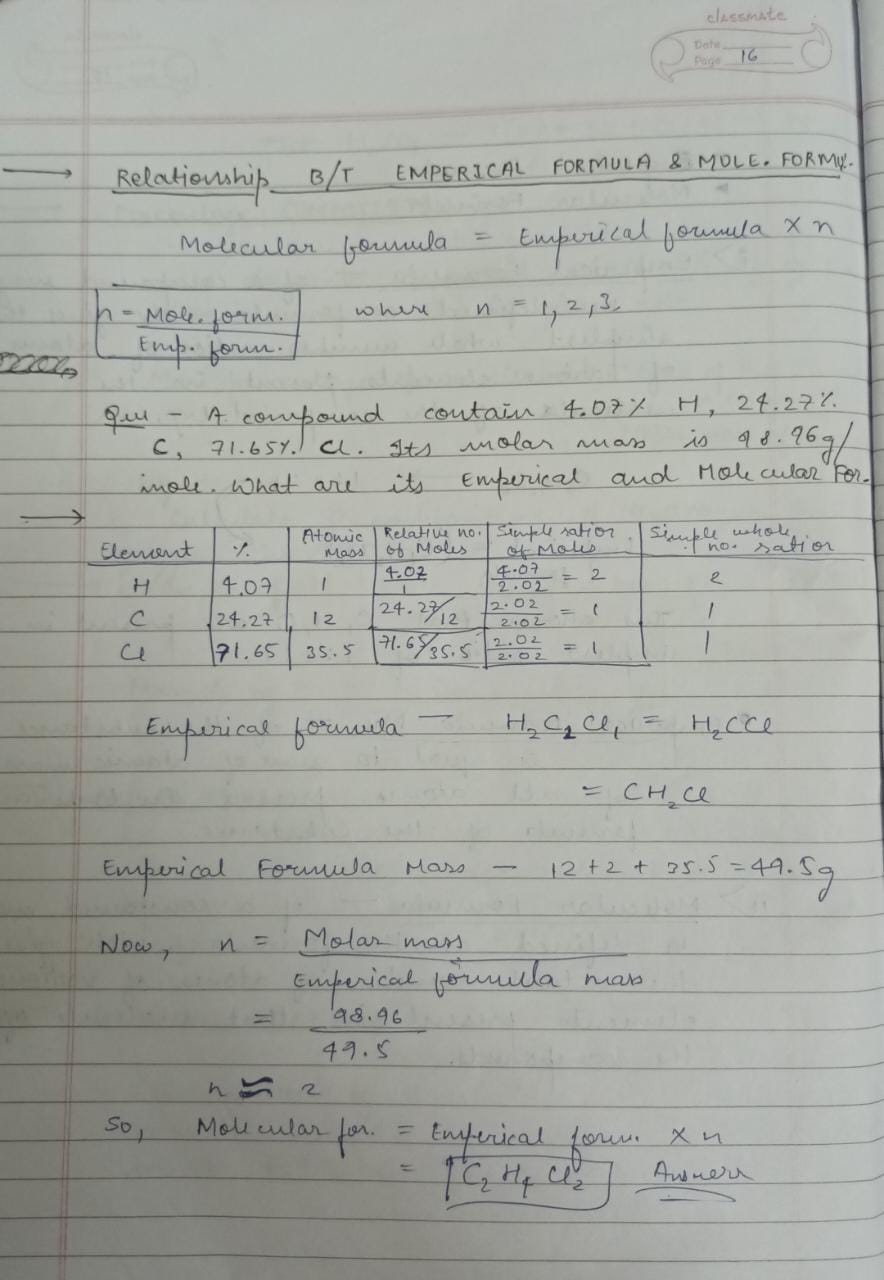 classmate
Date
Page 16
→ Relationship B/T EMPERICAL FORMULA & MOLE. FORMU.
Molecular formula = Emperical formula × n
n = Mole. form. / Emp. form. where n = 1, 2, 3.
Que - A compound contain 4.07% H, 24.27%
C, 71.65% Cl. Its molar mass is 98.96g/
mole. What are its Emperical and Molecular For.
→
Element | % | Atomic Mass | Relative no. of Moles | Simple ratior of Moles | Simple whole no. ratior
H | 4.07 | 1 | 4.07/1 | 4.07/2.02 = 2 | 2
C | 24.27 | 12 | 24.27/12 | 2.02/2.02 = 1 | 1
Cl | 71.65 | 35.5 | 71.65/35.5 | 2.02/2.02 = 1 | 1
Emperical formula — H₂C₁Cl₁ = H₂CCl
= CH₂Cl
Emperical Formula Mass — 12 + 2 + 35.5 = 49.5g
Now, n = Molar mass
Emperical formula mass
= 98.96
49.5
n ≈ 2
So, Molecular for. = Emperical form. × n
= C₂H₄Cl₂ Answer